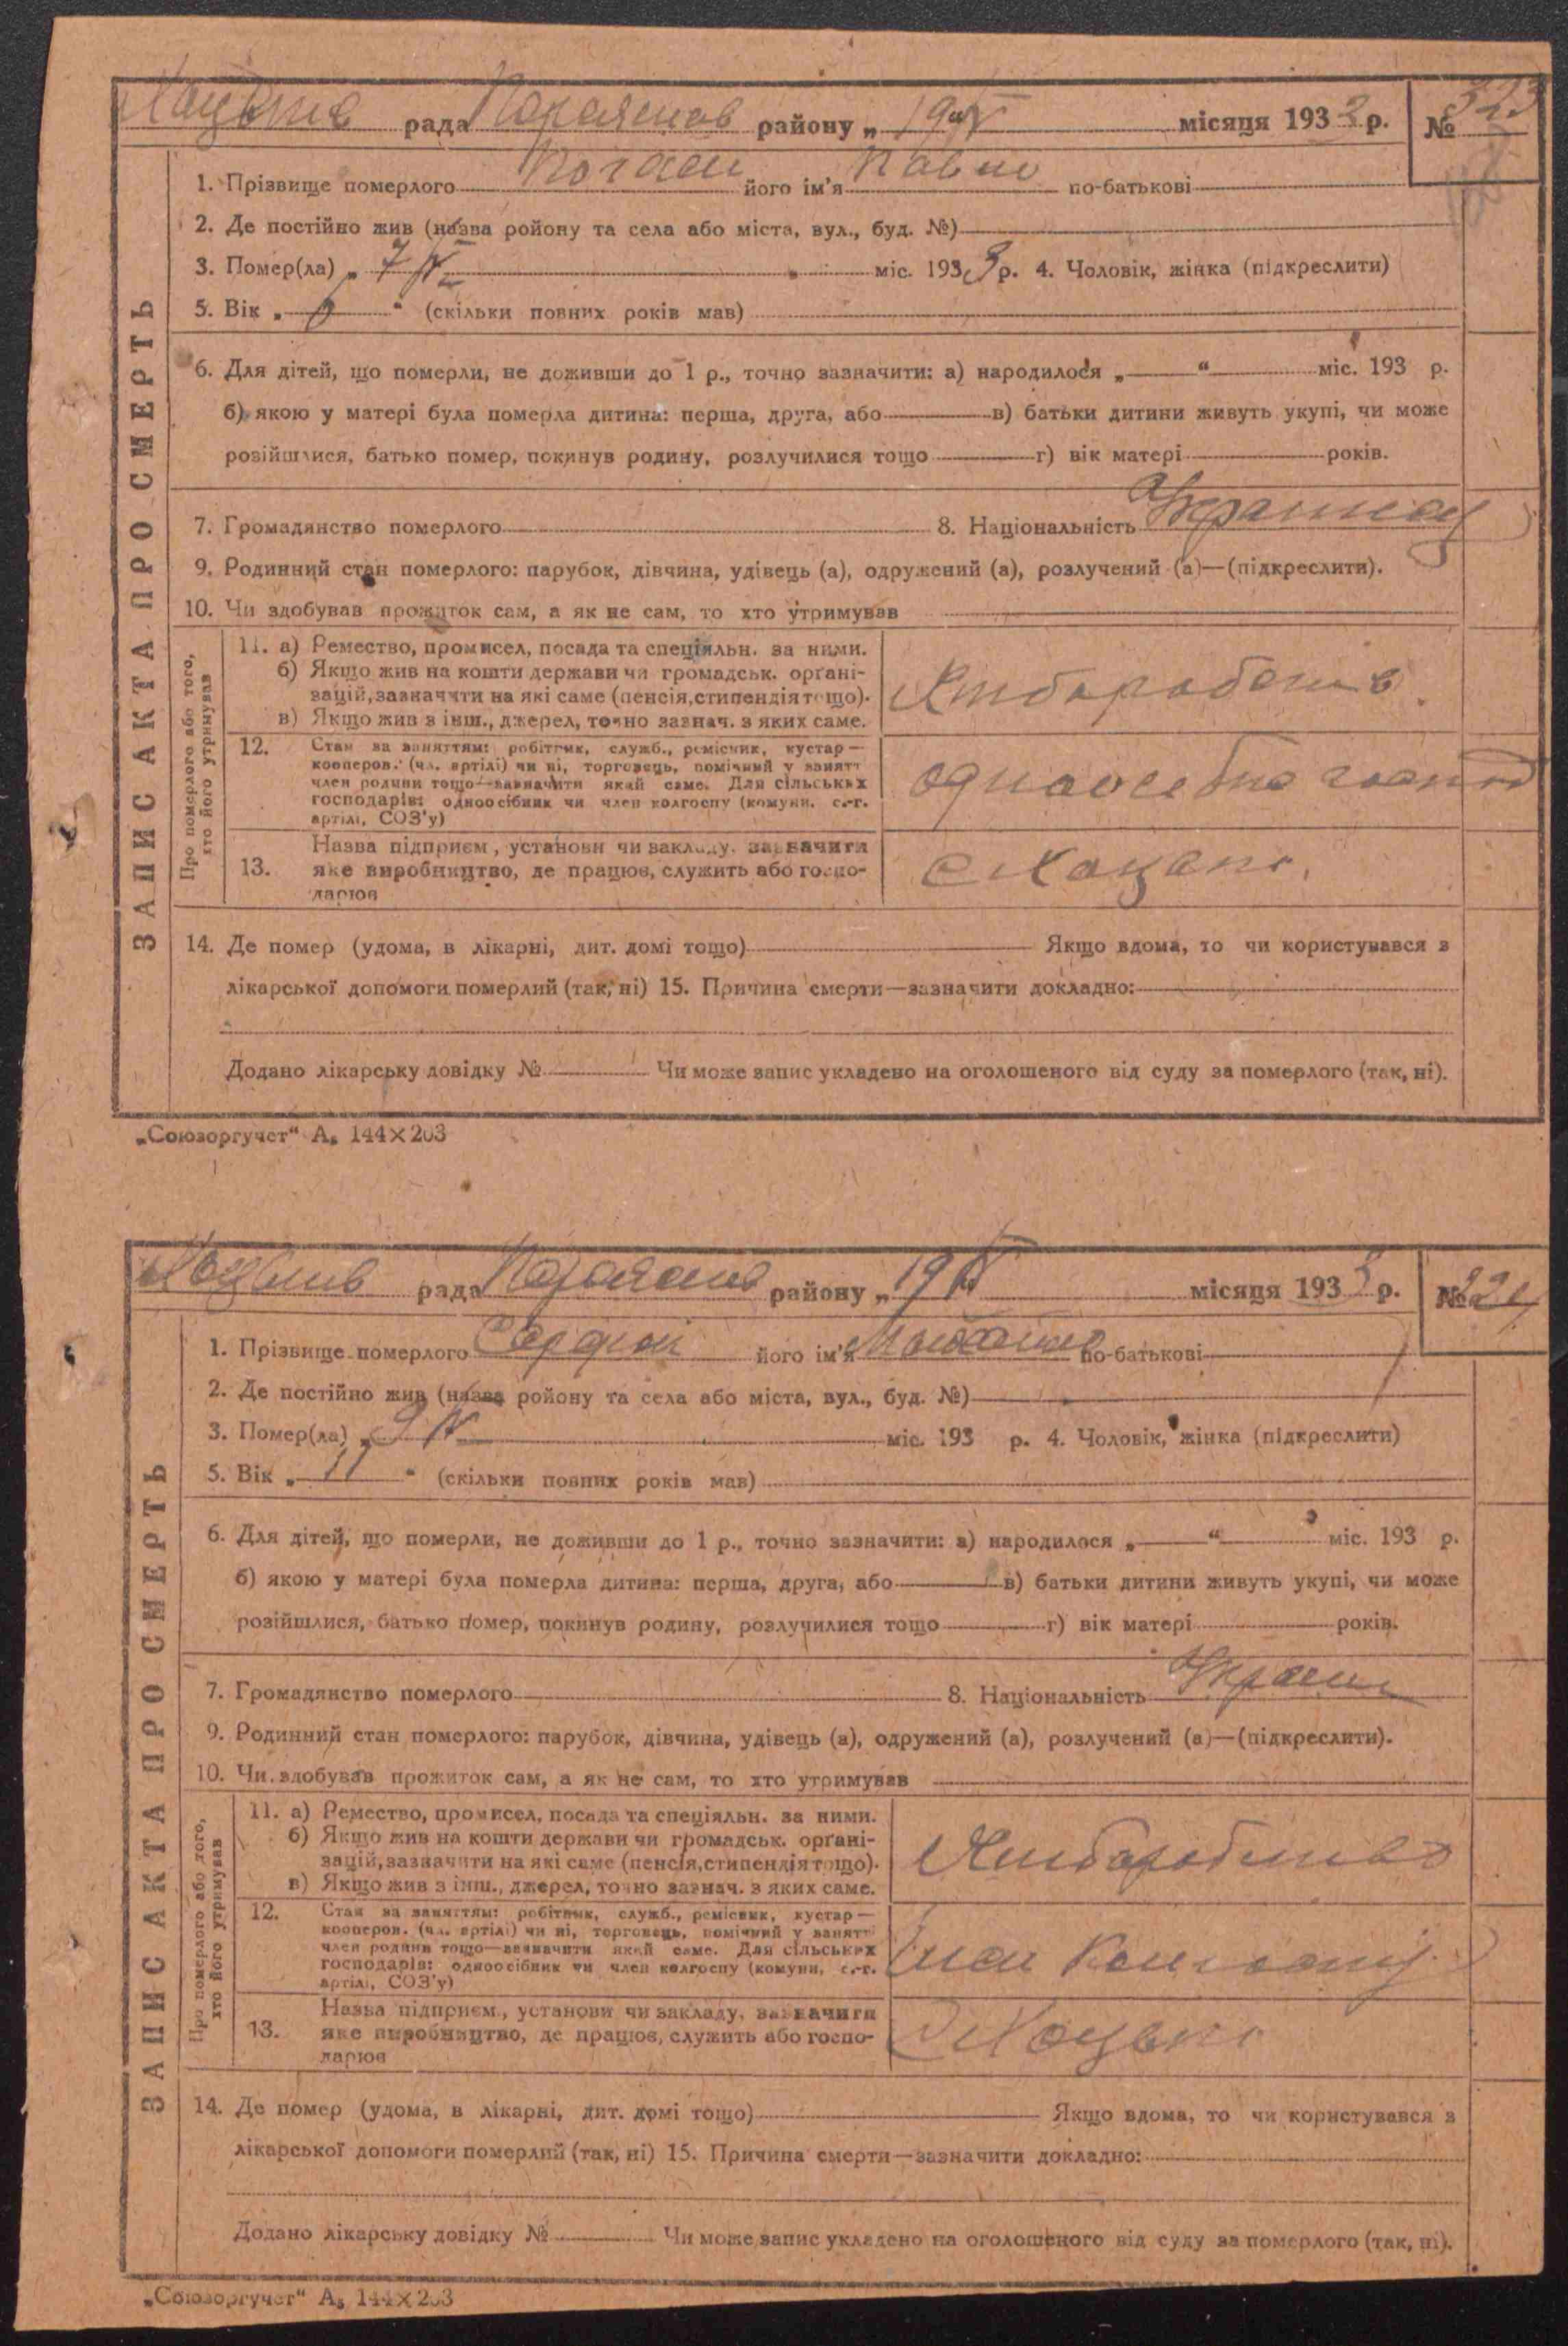 рада району „19 IV місяця 1933 р. № 323
1. Прізвище померлого Коган його ім'я Павло по-батькові
2. Де постійно жив (назва ройону та села або міста, вул., буд. №)
3. Помер(ла) „ 7 IV " міс. 1933 р. 4. Чоловік, жінка (підкреслити)
5. Вік „ " (скільки повних років мав)
6. Для дітей, що померли, не доживши до 1 р., точно зазначити: а) народилося „ “ міс. 193 р.
б) якою у матері була померла дитина: перша, друга, або в) батьки дитини живуть укупі, чи може
розійшлися, батько помер, покинув родину, розлучилися тощо г) вік матері років.
7. Громадянство померлого 8. Національність
9. Родинний стан померлого: парубок, дівчина, удівець (а), одружений (а), розлучений (а)—(підкреслити).
10. Чи здобував прожиток сам, а як не сам, то хто утримував
ЗАПИС АКТА ПРО СМЕРТЬ
Про померлого або того,
хто його утримував
11. а) Ремество, промисел, посада та спеціяльн. за ними.
б) Якщо жив на кошти держави чи громадськ. органі-
зацій, зазначити на які саме (пенсія, стипендія тощо).
в) Якщо жив з інш., джерел, точно зазнач. з яких саме.
Хліборобство
12. Стан за заняттям: робітник, служб., ремісник, кустар—
кооперов. (чл. артілі) чи ні, торговець, помічний у занятт
член родини тощо—зазначити який саме. Для сільських
господарів: одноосібник чи член колгоспу (комуни, с.-г.
артілі, СОЗ'у)
одноосібне господ
13. Назва підприєм, установи чи закладу, зазначити
яке виробництво, де працює, служить або госпо-
дарює
14. Де помер (удома, в лікарні, дит. домі тощо) Якщо вдома, то чи користувався з
лікарської допомоги померлий (так, ні) 15. Причина смерти—зазначити докладно:
Додано лікарську довідку № Чи може запис укладено на оголошеного від суду за померлого (так, ні).
„Союзоргучет“ А₅ 144×203
рада району „19 IV місяця 1933 р. № 324
1. Прізвище померлого його ім'я по-батькові
2. Де постійно жив (назва ройону та села або міста, вул., буд. №)
3. Помер(ла) „ 9 IV міс. 193 р. 4. Чоловік, жінка (підкреслити)
5. Вік „ 11 " (скільки повних років мав)
6. Для дітей, що померли, не доживши до 1 р., точно зазначити: а) народилося „ “ міс. 193 р.
б) якою у матері була померла дитина: перша, друга, або в) батьки дитини живуть укупі, чи може
розійшлися, батько помер, покинув родину, розлучилися тощо г) вік матері років.
7. Громадянство померлого 8. Національність
9. Родинний стан померлого: парубок, дівчина, удівець (а), одружений (а), розлучений (а)—(підкреслити).
10. Чи здобував прожиток сам, а як не сам, то хто утримував
ЗАПИС АКТА ПРО СМЕРТЬ
Про померлого або того,
хто його утримував
11. а) Ремество, промисел, посада та спеціяльн. за ними.
б) Якщо жив на кошти держави чи громадськ. органі-
зацій, зазначити на які саме (пенсія, стипендія тощо).
в) Якщо жив з інш., джерел, точно зазнач. з яких саме.
Хліборобство
12. Стан за заняттям: робітник, служб., ремісник, кустар—
кооперов. (чл. артілі) чи ні, торговець, помічний у занятт
член родини тощо—зазначити який саме. Для сільських
господарів: одноосібник чи член колгоспу (комуни, с.-г.
артілі, СОЗ'у)
член колгоспу
13. Назва підприєм., установи чи закладу, зазначити
яке виробництво, де працює, служить або госпо-
дарює
14. Де помер (удома, в лікарні, дит. домі тощо) Якщо вдома, то чи користувався з
лікарської допомоги померлий (так, ні) 15. Причина смерти—зазначити докладно:
Додано лікарську довідку № Чи може запис укладено на оголошеного від суду за померлого (так, ні).
„Союзоргучет“ А₅ 144×203